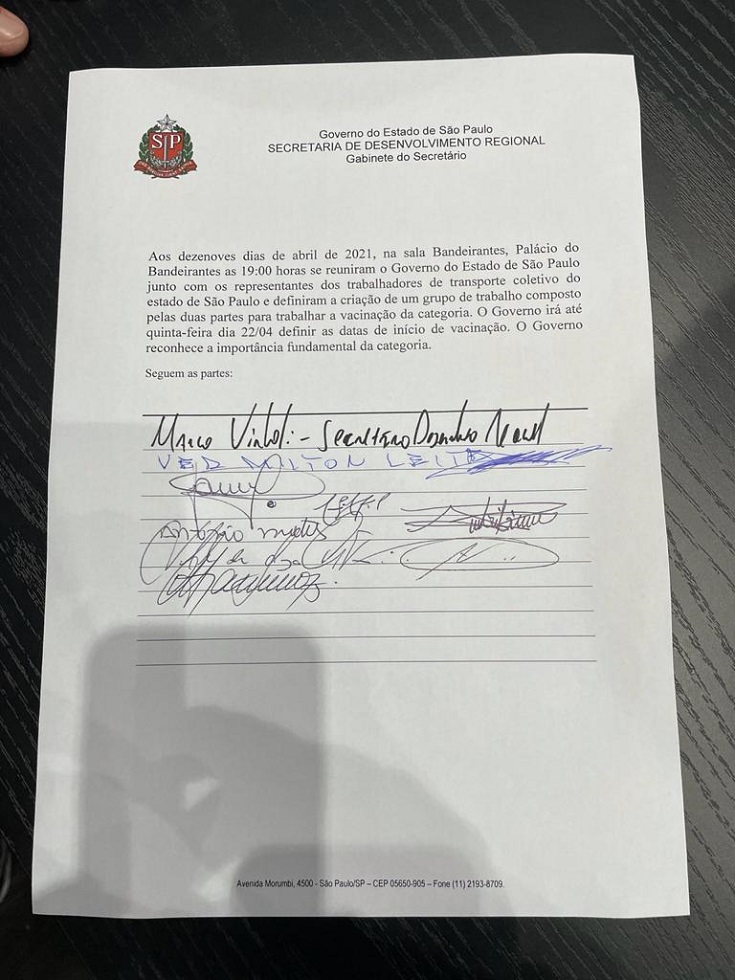 SP
Governo do Estado de São Paulo
SECRETARIA DE DESENVOLVIMENTO REGIONAL
Gabinete do Secretário
Aos dezenoves dias de abril de 2021, na sala Bandeirantes, Palácio do
Bandeirantes as 19:00 horas se reuniram o Governo do Estado de São Paulo
junto com os representantes dos trabalhadores de transporte coletivo do
estado de São Paulo e definiram a criação de um grupo de trabalho composto
pelas duas partes para trabalhar a vacinação da categoria. O Governo irá até
quinta-feira dia 22/04 definir as datas de início de vacinação. O Governo
reconhece a importância fundamental da categoria.
Seguem as partes:
Marco Vinholi - Secretário
VER MILTON LEITE
Antônio
Avenida Morumbi, 4500 - São Paulo/SP – CEP 05650-905 – Fone (11) 2193-8709.